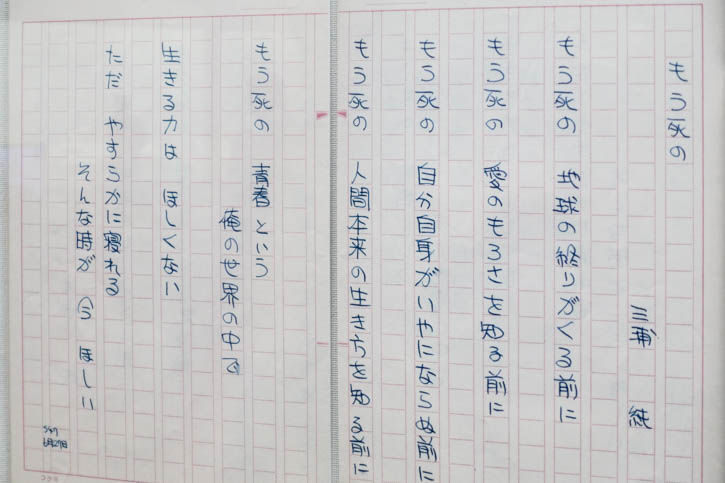 もう死の
三浦 純
もう死の 地球の終りがくる前に
もう死の 愛のもろさを知る前に
もう死の 自分自身がいやにならぬ前に
もう死の 人間本来の生き方を知る前に
もう死の 青春という
俺の世界の中で
生きる力は ほしくない
ただ やすらかに寝れる
そんな時が 今 ほしい
6月27日
コクヨ